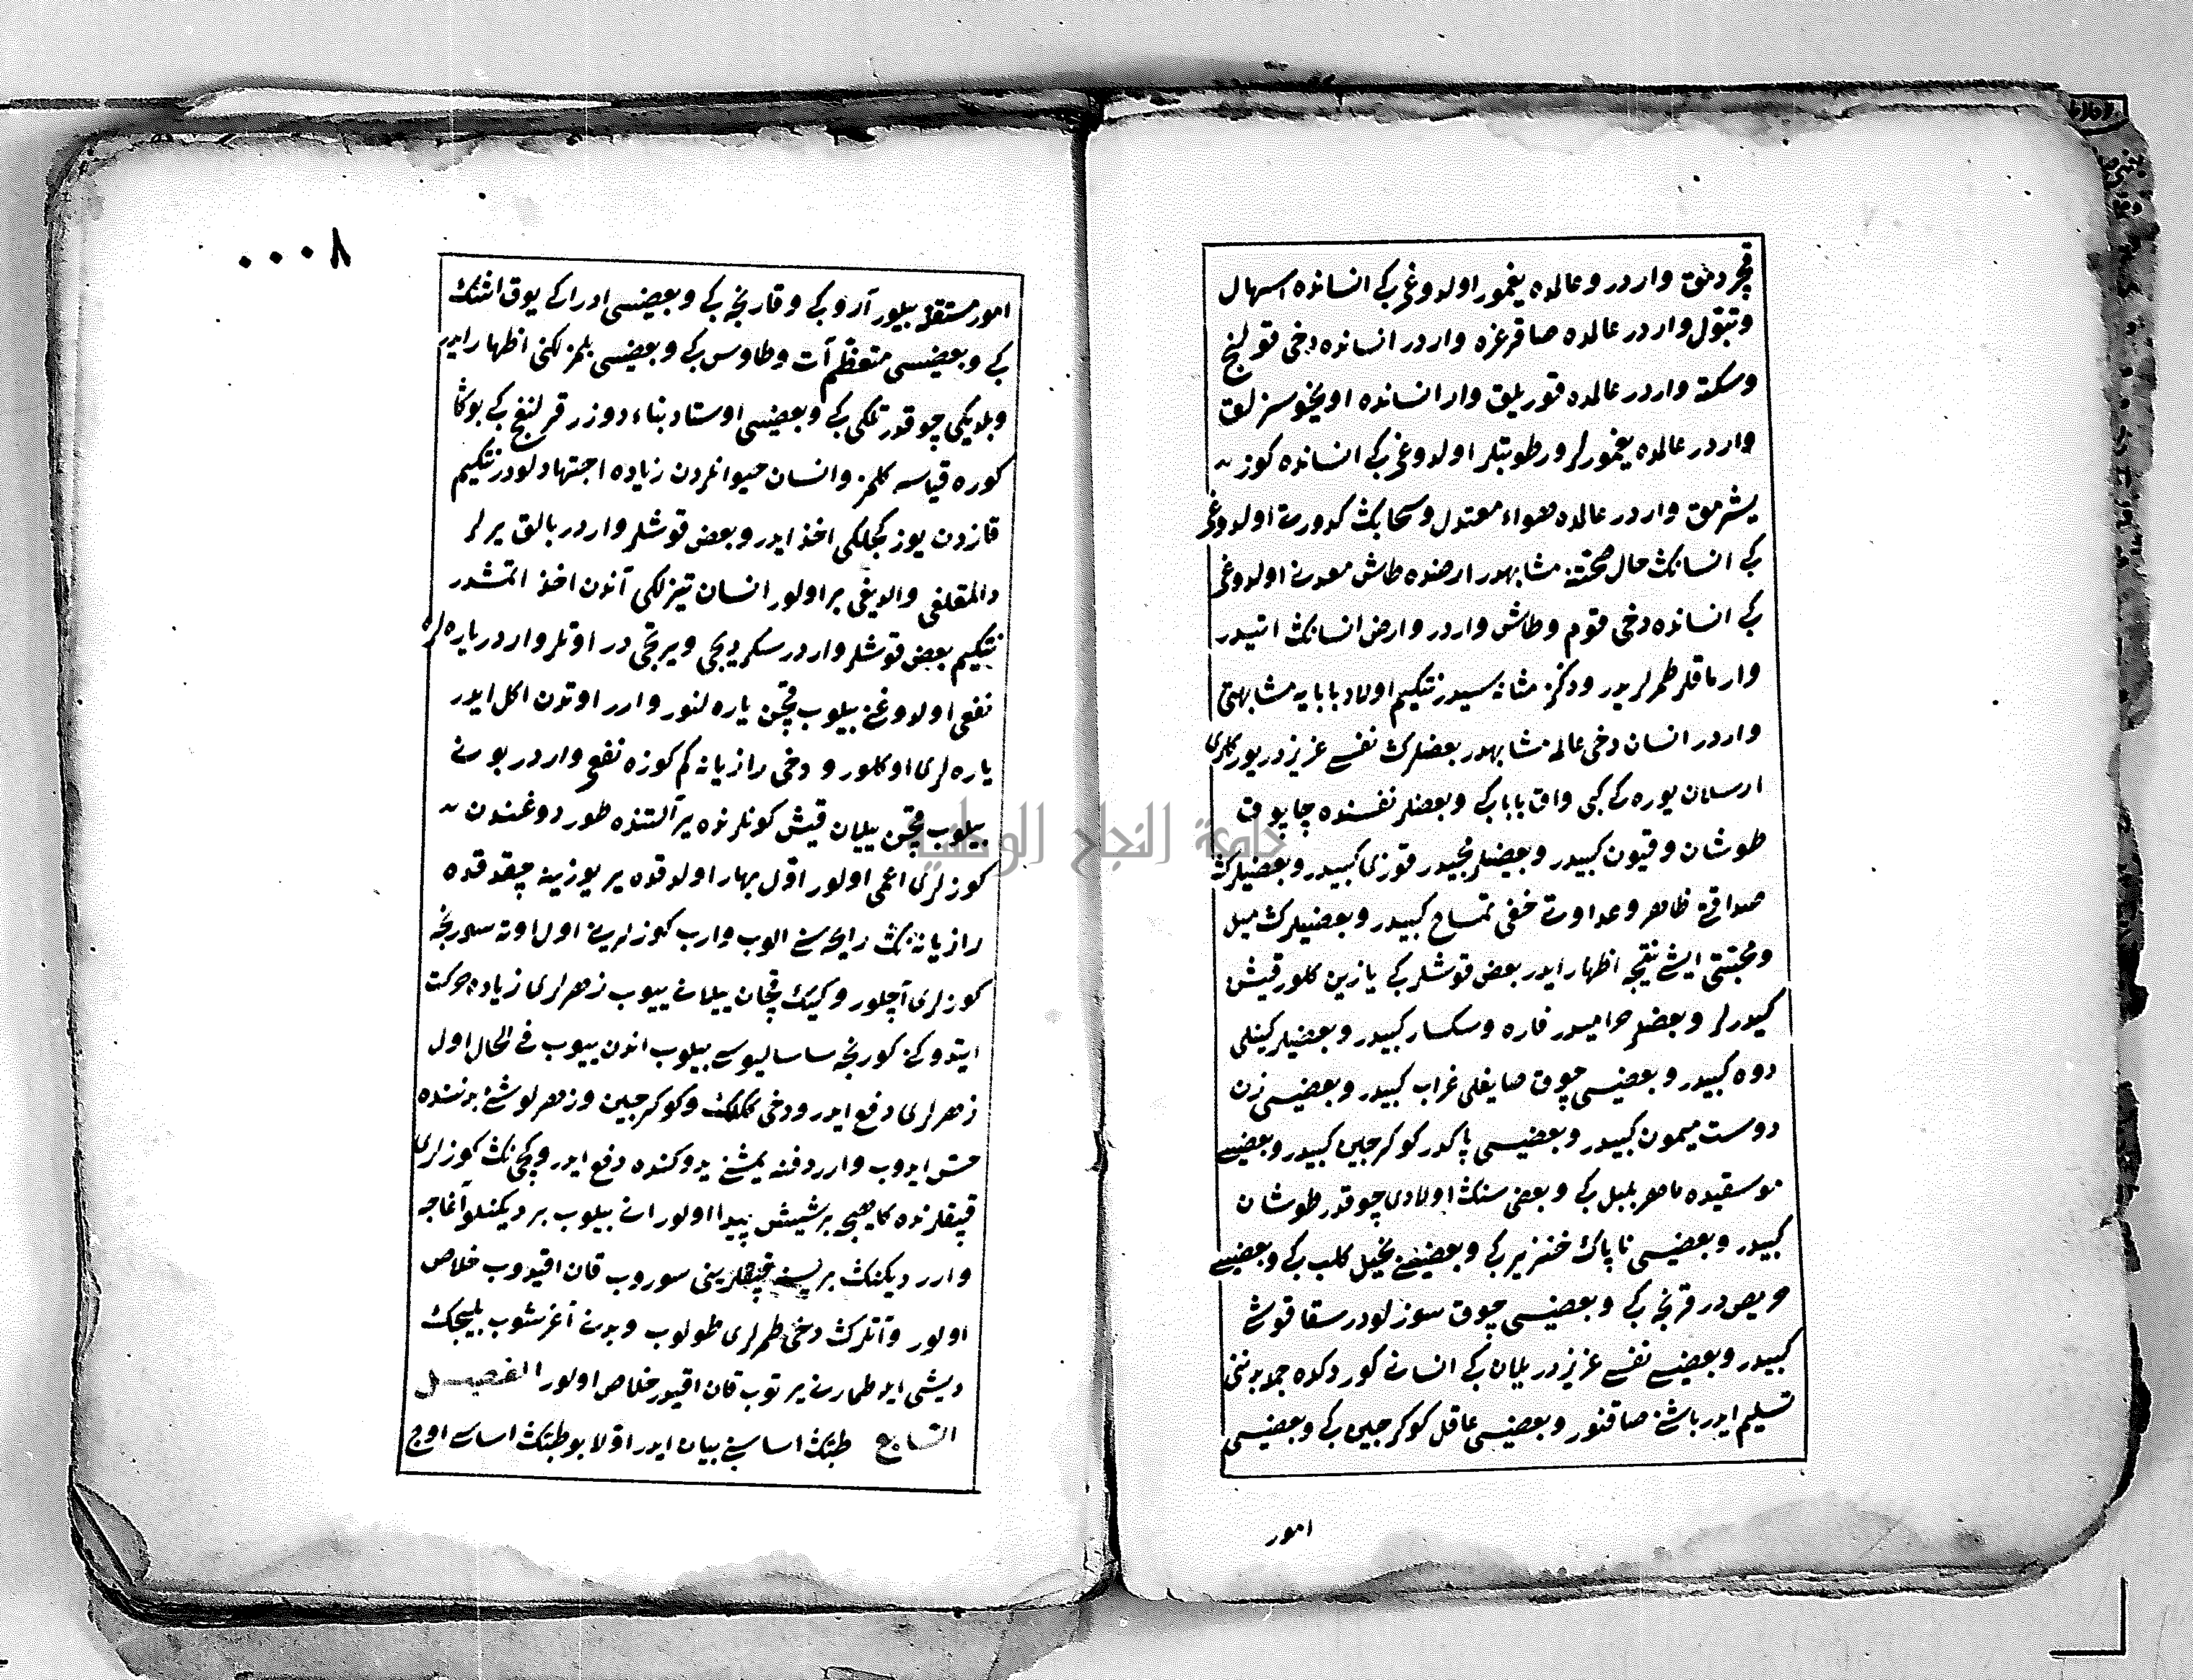 قچرمق واردر وعالمده يغمور اولدوغی کبی انسانده اسهال
وتبول واردر عالمده صاقرغه واردر انسانده دخی قولنج
وسکته واردر عالمده قوريلق وار انسانده اويخوسزلق
واردر عالمده يغمورلر ورطوبتلر اولدوغی کبی انسانده کوز
يشرمق واردر عالمده هواء معتدل وسحابك کدورت اولدوغی
کبی انسانك حال صحتنه مشابهدر ارضنده طاش معدن اولدوغی
کبی انسانده دخی قوم وطاش واردر وارض انسانك اتيدر
وارماقلر طمرلريدر ودکز مثانه سيدر نتکيم اولاد بابايه مشابهتی
واردر انسان دخی عالمه مشابهدر بعضلرك نفسی عزيزدر يورکلری
ارسلان يوره کی کبی واق بابا کبی وبعضلر نفسنده چاپوق
طوشان وقيون کبيدر وبعضلر قوزی کبيدر وبعضيلرك
صداقتی ظاهر وعداوت خفی تمساح کبيدر وبعضيلرك ميل
ومحبتی ايشی نتيجه اظهار ايدر بعض قوشلر کبی يازين کلور قيش
کيدرلر وبعضلر حراميدر فاره وسکسار کبيدر وبعضيلر کينلی
دوه کبيدر وبعضيسی چوق صايغلی غراب کبيدر وبعضيسی زن
دوست ميمون کبيدر وبعضيسی پاکدر کوکرجين کبيدر وبعضيسی
موسقيده ماهر بلبل کبی وبعضی سنك اولادی چوقدر طوشان
کبيدر وبعضيسی ناپاك خنزير کبی وبعضيسی بخيل کلب کبی وبعضيسی
حريصدر قرنجه کبی وبعضيسی چوق سوزلودر سقا قوشی
کبيدر وبعضيسی نفسی عزيزدر يلان کبی انسانی کوردکده جمله بدننی
تسليم ايدر باشنی صاقنور وبعضيسی عاقل کوکرجين کبی وبعضيسی
امور
٠٠٠٨
امور مستقبله بيلور آرو کبی وقارنجه کبی وبعضيسی ادراکی يوق اشك
کبی وبعضيسی متعظم آت وطاوس کبی وبعضيسی بلمز لکنی اظهار ايدر
وبلديکی چوقدر تلکی کبی وبعضيسی اوستاد بناء دوزر قرلنغج کبی بوکا
کوره قياسه کلمز وانسان حيوانلردن زياده اجتهادلودر نتکيم
قازدن يوزکجلکی اخذ ايدر وبعض قوشلر واردر بالق يرلر
دالمقلغی والديغی بر اولور انسان تيزلکی آندن اخذ اتمشدر
نتکيم بعض قوشلر واردر سکرديجی ويرتجی در اوتلر واردر ياره لره
نفعی اولدوغن بيلوب قچن ياره لنور وارر اوتدن اکل ايدر
ياره لری اوکلور ودخی رازيانه کم کوزه نفع واردر بونی
بيلوب قچن ييلان قيش کونلرنده ير آلتنده طوردوغندن
کوزلری اعمی اولور اول بهار اولدقده ير يوزينه چقدقده
رازيانه نك رايحه سنی الوب وارب کوزلرين اول اوته سورنجه
کوزلری آچلور وکيك قچان ييلانی ييوب زهرلری زياده حرکت
ايتدوکن کورنجه ساساليوسی بيلوب اندن ييوب فی الحال اول
زهرلری دفع ايدر ودخی لکلك وکوکرجين وزهرلو شئ بدننده
حس ايدوب وارر دفنه يمشن يدوکنده دفع ايدر وکچی نك کوزلری
قپقلرنده کاهيجه بر شيش پيدا اولور انی بيلوب بر ديکنلو آغاجه
وارر ديکنك برينه قپقلرينی سوروب قان اقيدوب خلاص
اولور وآتلرك دخی طمرلری طولوب وبدنی آغرشوب بليجك
ديشی ايله طمارين يرتوب قان اقيدر خلاص اولور الفصل
السابع طبك اساسينی بيان ايدر اولا بو طبك اساسی اوچ